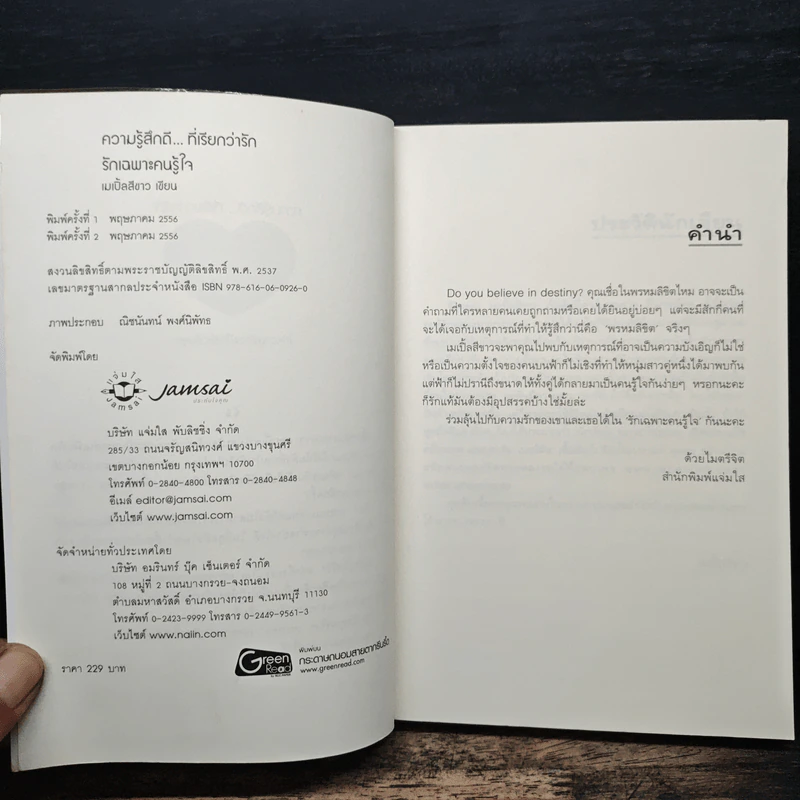 ความรู้สึกดี... ที่เรียกว่ารัก
รักเฉพาะคนรู้ใจ
เมเปิ้ลสีขาว เขียน
พิมพ์ครั้งที่ 1 พฤษภาคม 2556
พิมพ์ครั้งที่ 2 พฤษภาคม 2556
สงวนลิขสิทธิ์ตามพระราชบัญญัติลิขสิทธิ์ พ.ศ. 2537
เลขมาตรฐานสากลประจำหนังสือ ISBN 978-616-06-0926-0
ภาพประกอบ ณิชนันทน์ พงศ์นิพัทธ
จัดพิมพ์โดย
แจ่มใส
Jamsai
Jamsai
บริษัท แจ่มใส พับลิชชิ่ง จำกัด
285/33 ถนนจรัญสนิทวงศ์ แขวงบางขุนศรี
เขตบางกอกน้อย กรุงเทพฯ 10700
โทรศัพท์ 0-2840-4800 โทรสาร 0-2840-4848
อีเมล์ editor@jamsai.com
เว็บไซต์ www.jamsai.com
จัดจำหน่ายทั่วประเทศโดย
บริษัท อมรินทร์ บุ๊ค เซ็นเตอร์ จำกัด
108 หมู่ที่ 2 ถนนบางกรวย-จงถนอม
ตำบลมหาสวัสดิ์ อำเภอบางกรวย จ.นนทบุรี 11130
โทรศัพท์ 0-2423-9999 โทรสาร 0-2449-9561-3
เว็บไซต์ www.naiin.com
ราคา 229 บาท
Green Read
พิมพ์บน
กระดาษถนอมสายตากรีนรี้ด
www.greenread.com
คำนำ
Do you believe in destiny? คุณเชื่อในพรหมลิขิตไหม อาจจะเป็น
คำถามที่ใครหลายคนเคยถูกถามหรือเคยได้ยินอยู่บ่อยๆ แต่จะมีสักกี่คนที่
จะได้เจอกับเหตุการณ์ที่ทำให้รู้สึกว่านี่คือ 'พรหมลิขิต' จริงๆ
เมเปิ้ลสีขาวจะพาคุณไปพบกับเหตุการณ์ที่อาจเป็นความบังเอิญก็ไม่ใช่
หรือเป็นความตั้งใจของคนบนฟ้าก็ไม่เชิงที่ทำให้หนุ่มสาวคู่หนึ่งได้มาพบกัน
แต่ฟ้าก็ไม่ปรานีถึงขนาดให้ทั้งคู่ได้กลายมาเป็นคนรู้ใจกันง่ายๆ หรอกนะคะ
ก็รักแท้มันต้องมีอุปสรรคบ้างใช่มั้ยล่ะ
ร่วมลุ้นไปกับความรักของเขาและเธอได้ใน 'รักเฉพาะคนรู้ใจ' กันนะคะ
ด้วยไมตรีจิต
สำนักพิมพ์แจ่มใส